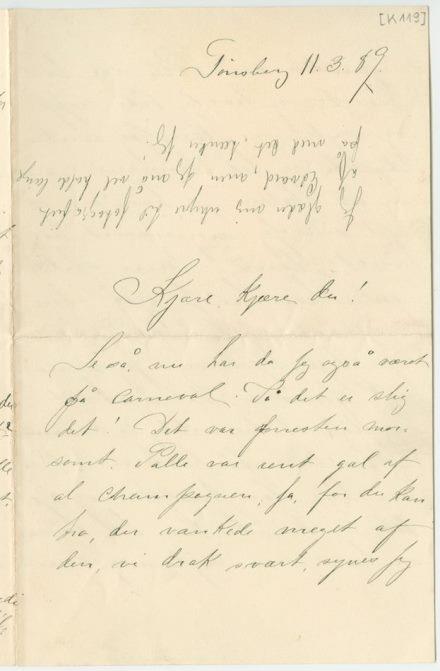 [K119]
Tønsberg 11.3.89.
Jeg glæder mig uhyre til fotografiet
af Edvard, men jeg må vel holde længe
på med det, tænker jeg.
Kjære, kjære du!
Se så, nu har da jeg også været
på carneval. Så det er slig
det! Det var forresten mor-
somt. Palle var rent gal af
al champagnen, ja, for du kan
tro, der vankede meget af
den, vi drak svært, synes jeg